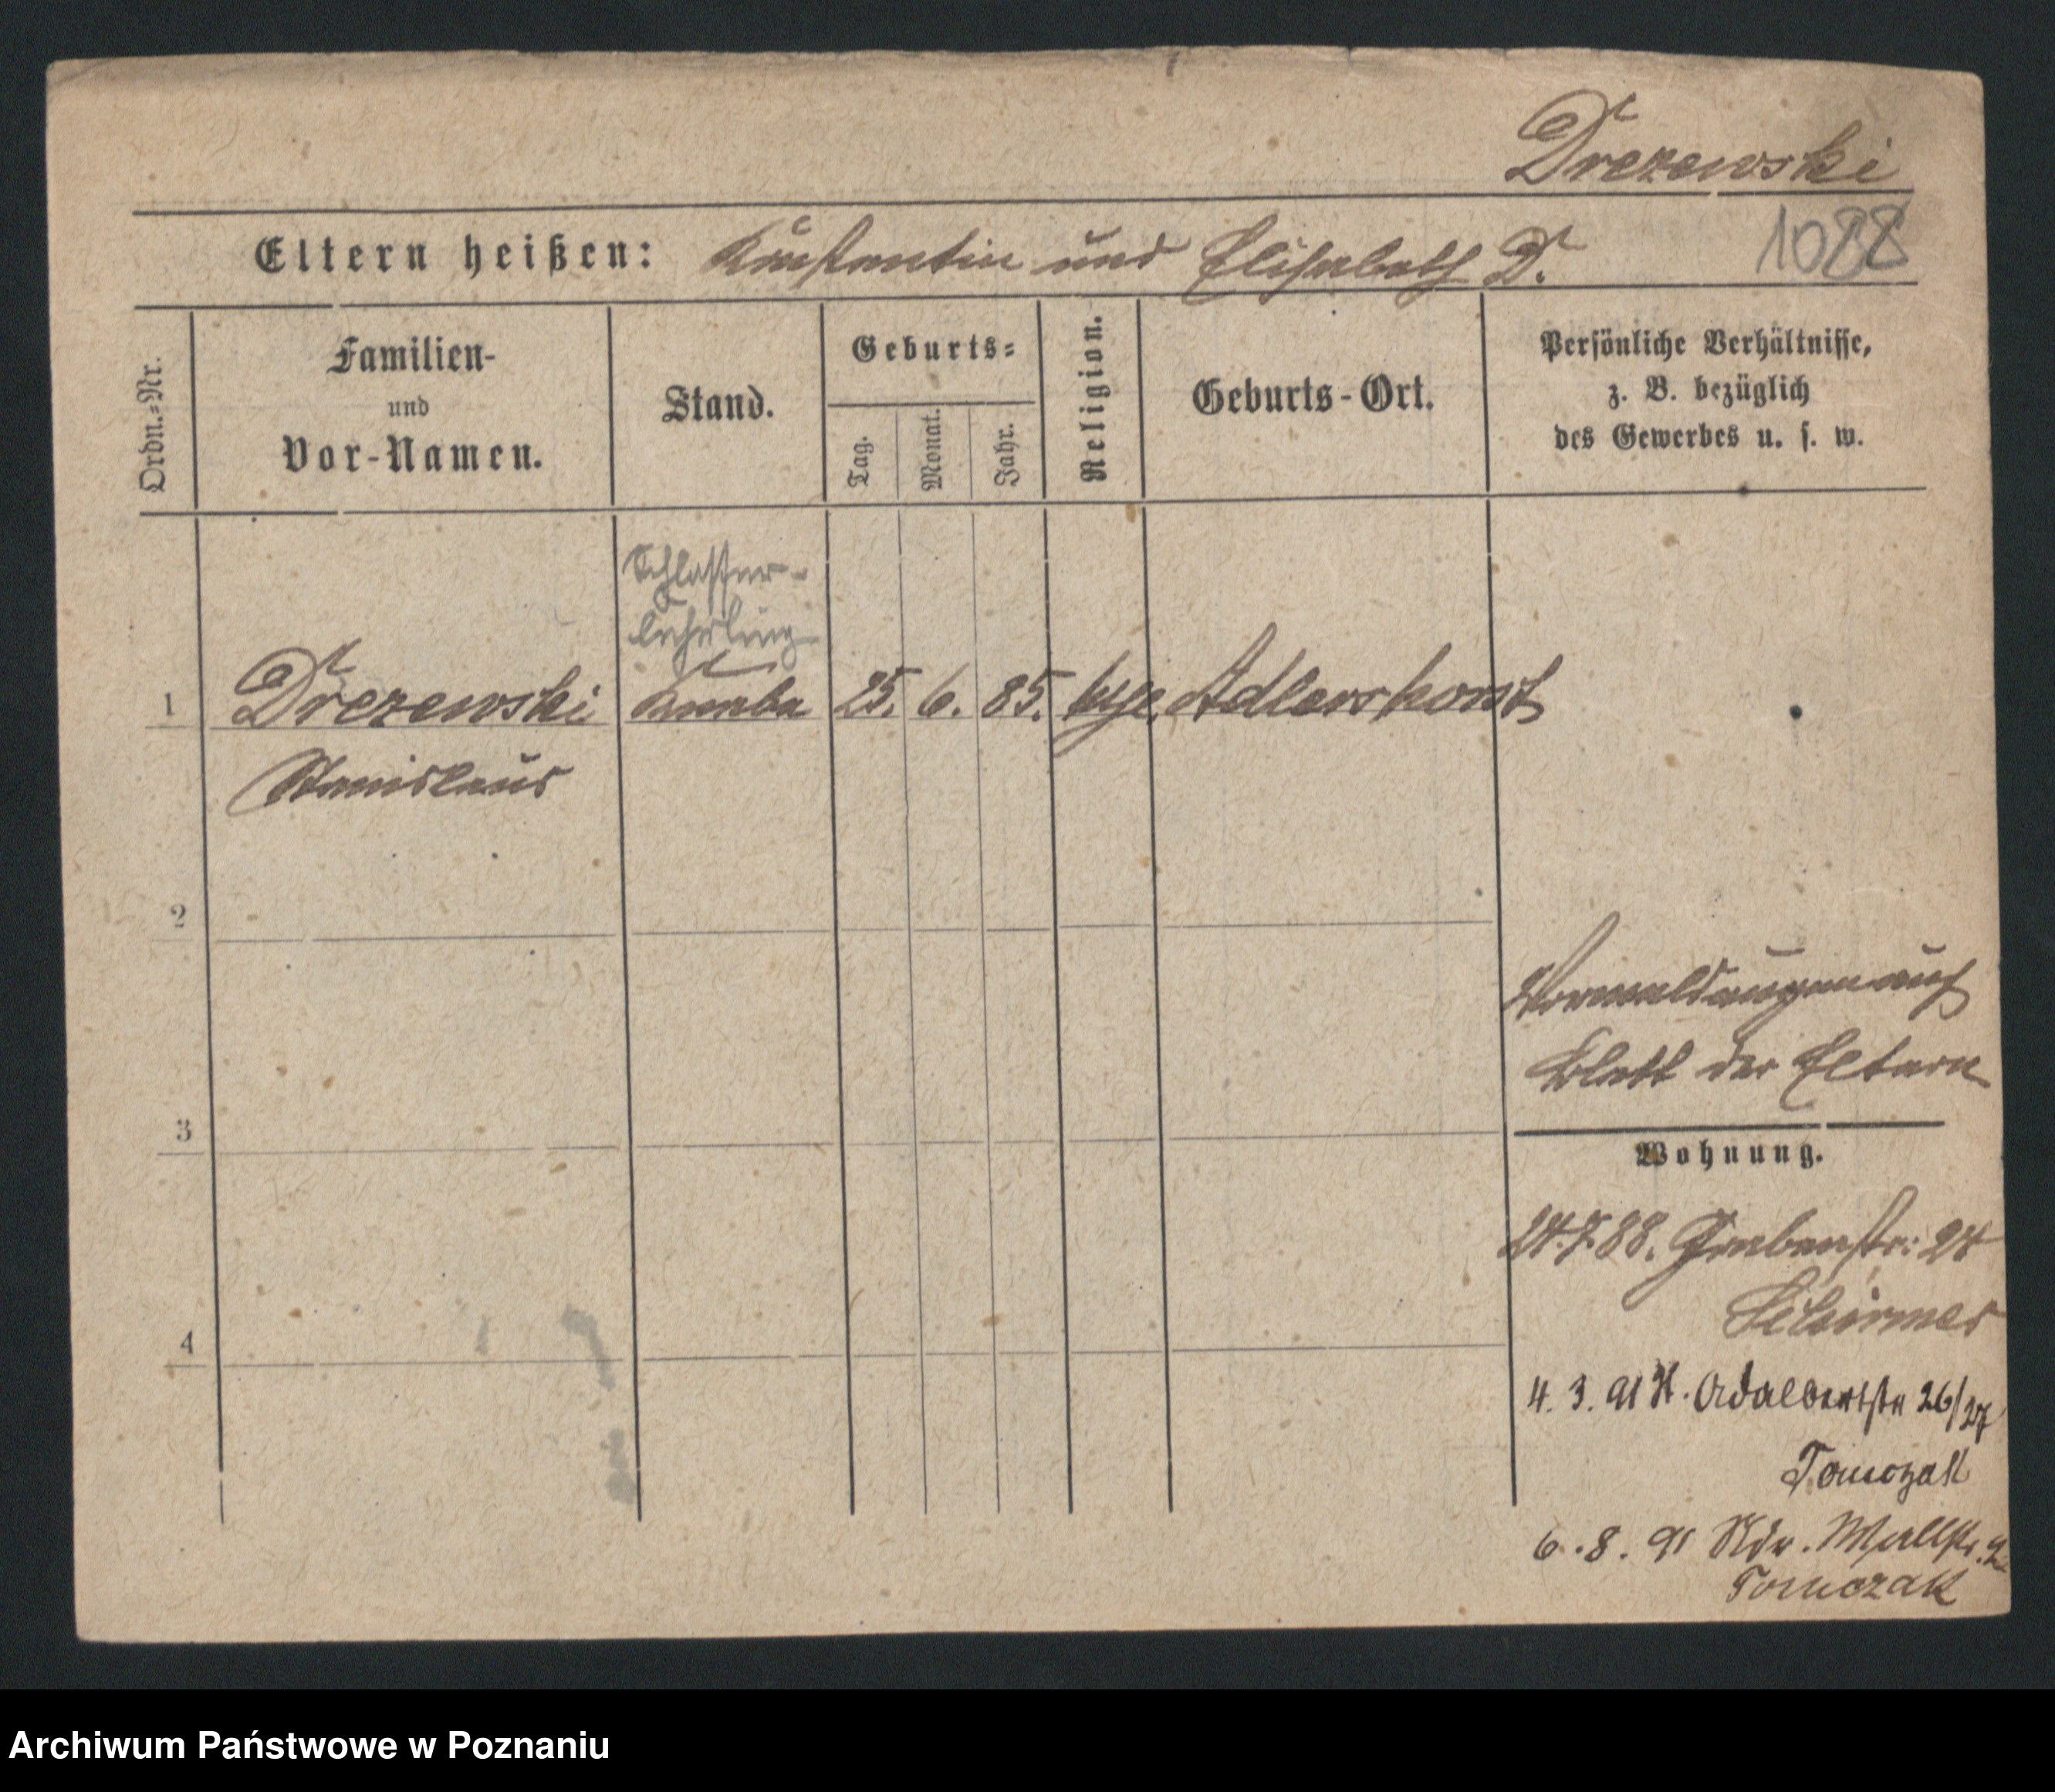 Drezewski
Eltern heißen: Konstantin und Elisabeth D.
1088
Ordn.=Nr.
Familien-
und
Vor-Namen.
Stand.
Geburts=
Tag.
Monat.
Jahr.
Religion.
Geburts-Ort.
Persönliche Verhältnisse,
z. B. bezüglich
des Gewerbes u. s. w.
Schlosser-
lehrling
1 Drezewski Knabe 25. 6. 85. Adlershorst
Stanislaus
2
auf
Blatt der Eltern
3
Wohnung.
24.7.88. Grabenstr: 24
Schirmer
4
4. 3. 91 H. Adalbertstr 26/27
Tomczak
6. 8. 91 Wallstr.
Tomczak
Archiwum Państwowe w Poznaniu